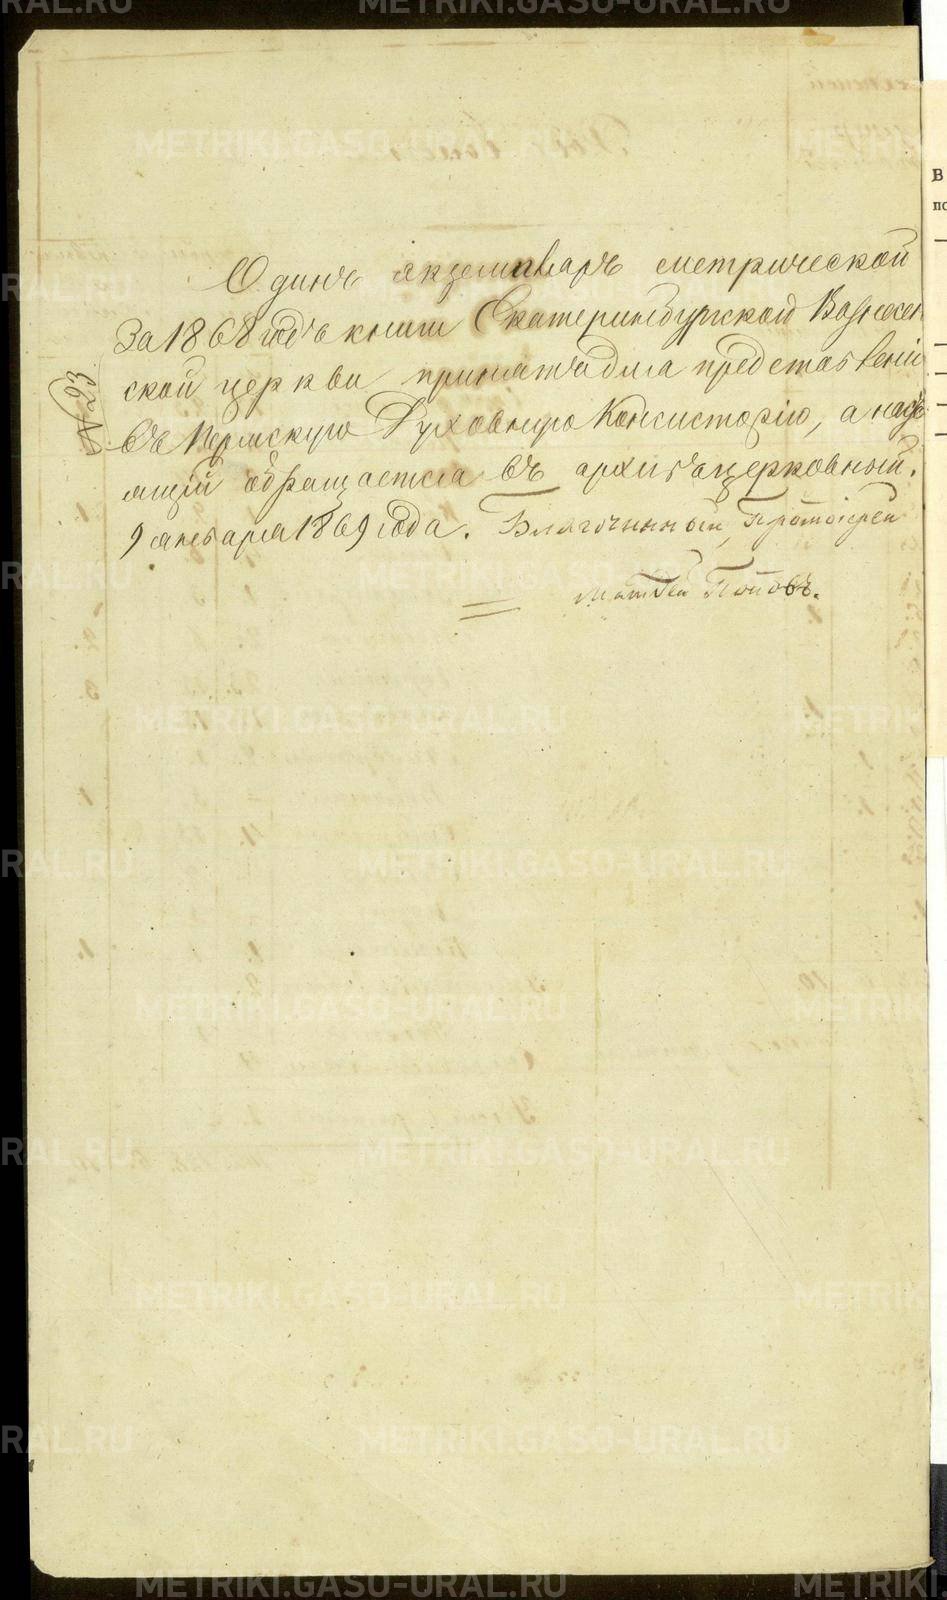 Одинъ экземпляръ метрической
за 1868 годъ книги Екатеринбургской Вознесен
ской церкви принятъ для представленія
въ Пермскую Духовную Консисторію, а насто
ящій обращается въ архивъ церковный.
9 января 1869 года. Благочинный, Протоіерей
Матвей Поповъ.
№ 23
METRIKI.GASO-URAL.RU